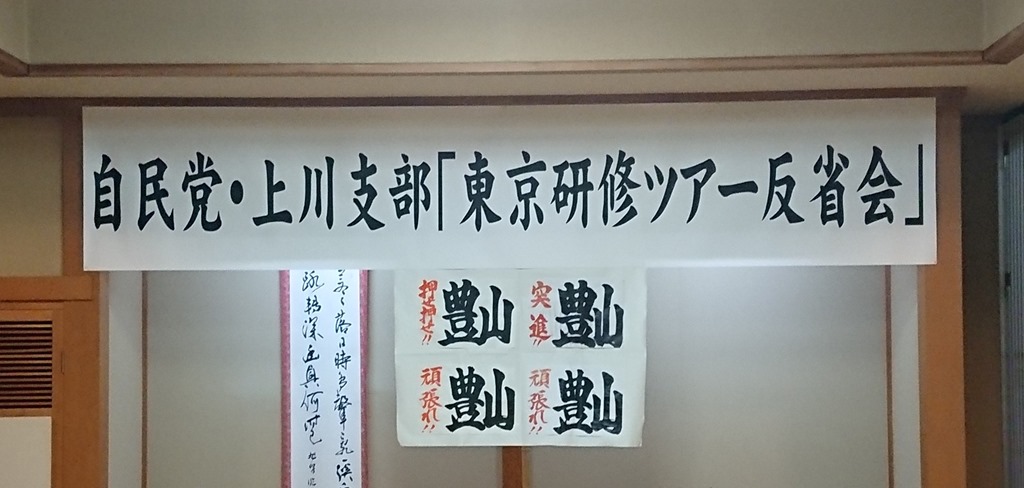 自民党・上川支部「東京研修ツアー反省会」
落日時多
深
何
豊山
押せ押せ!!
豊山
突進!!
豊山
頑張れ!!
豊山
頑張れ!!